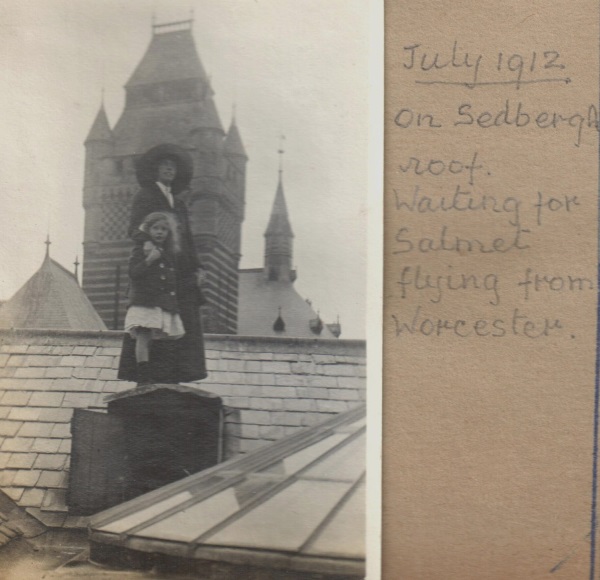 July 1912.
On Sedbergh
roof.
Waiting for
Salmet
flying from
Worcester.